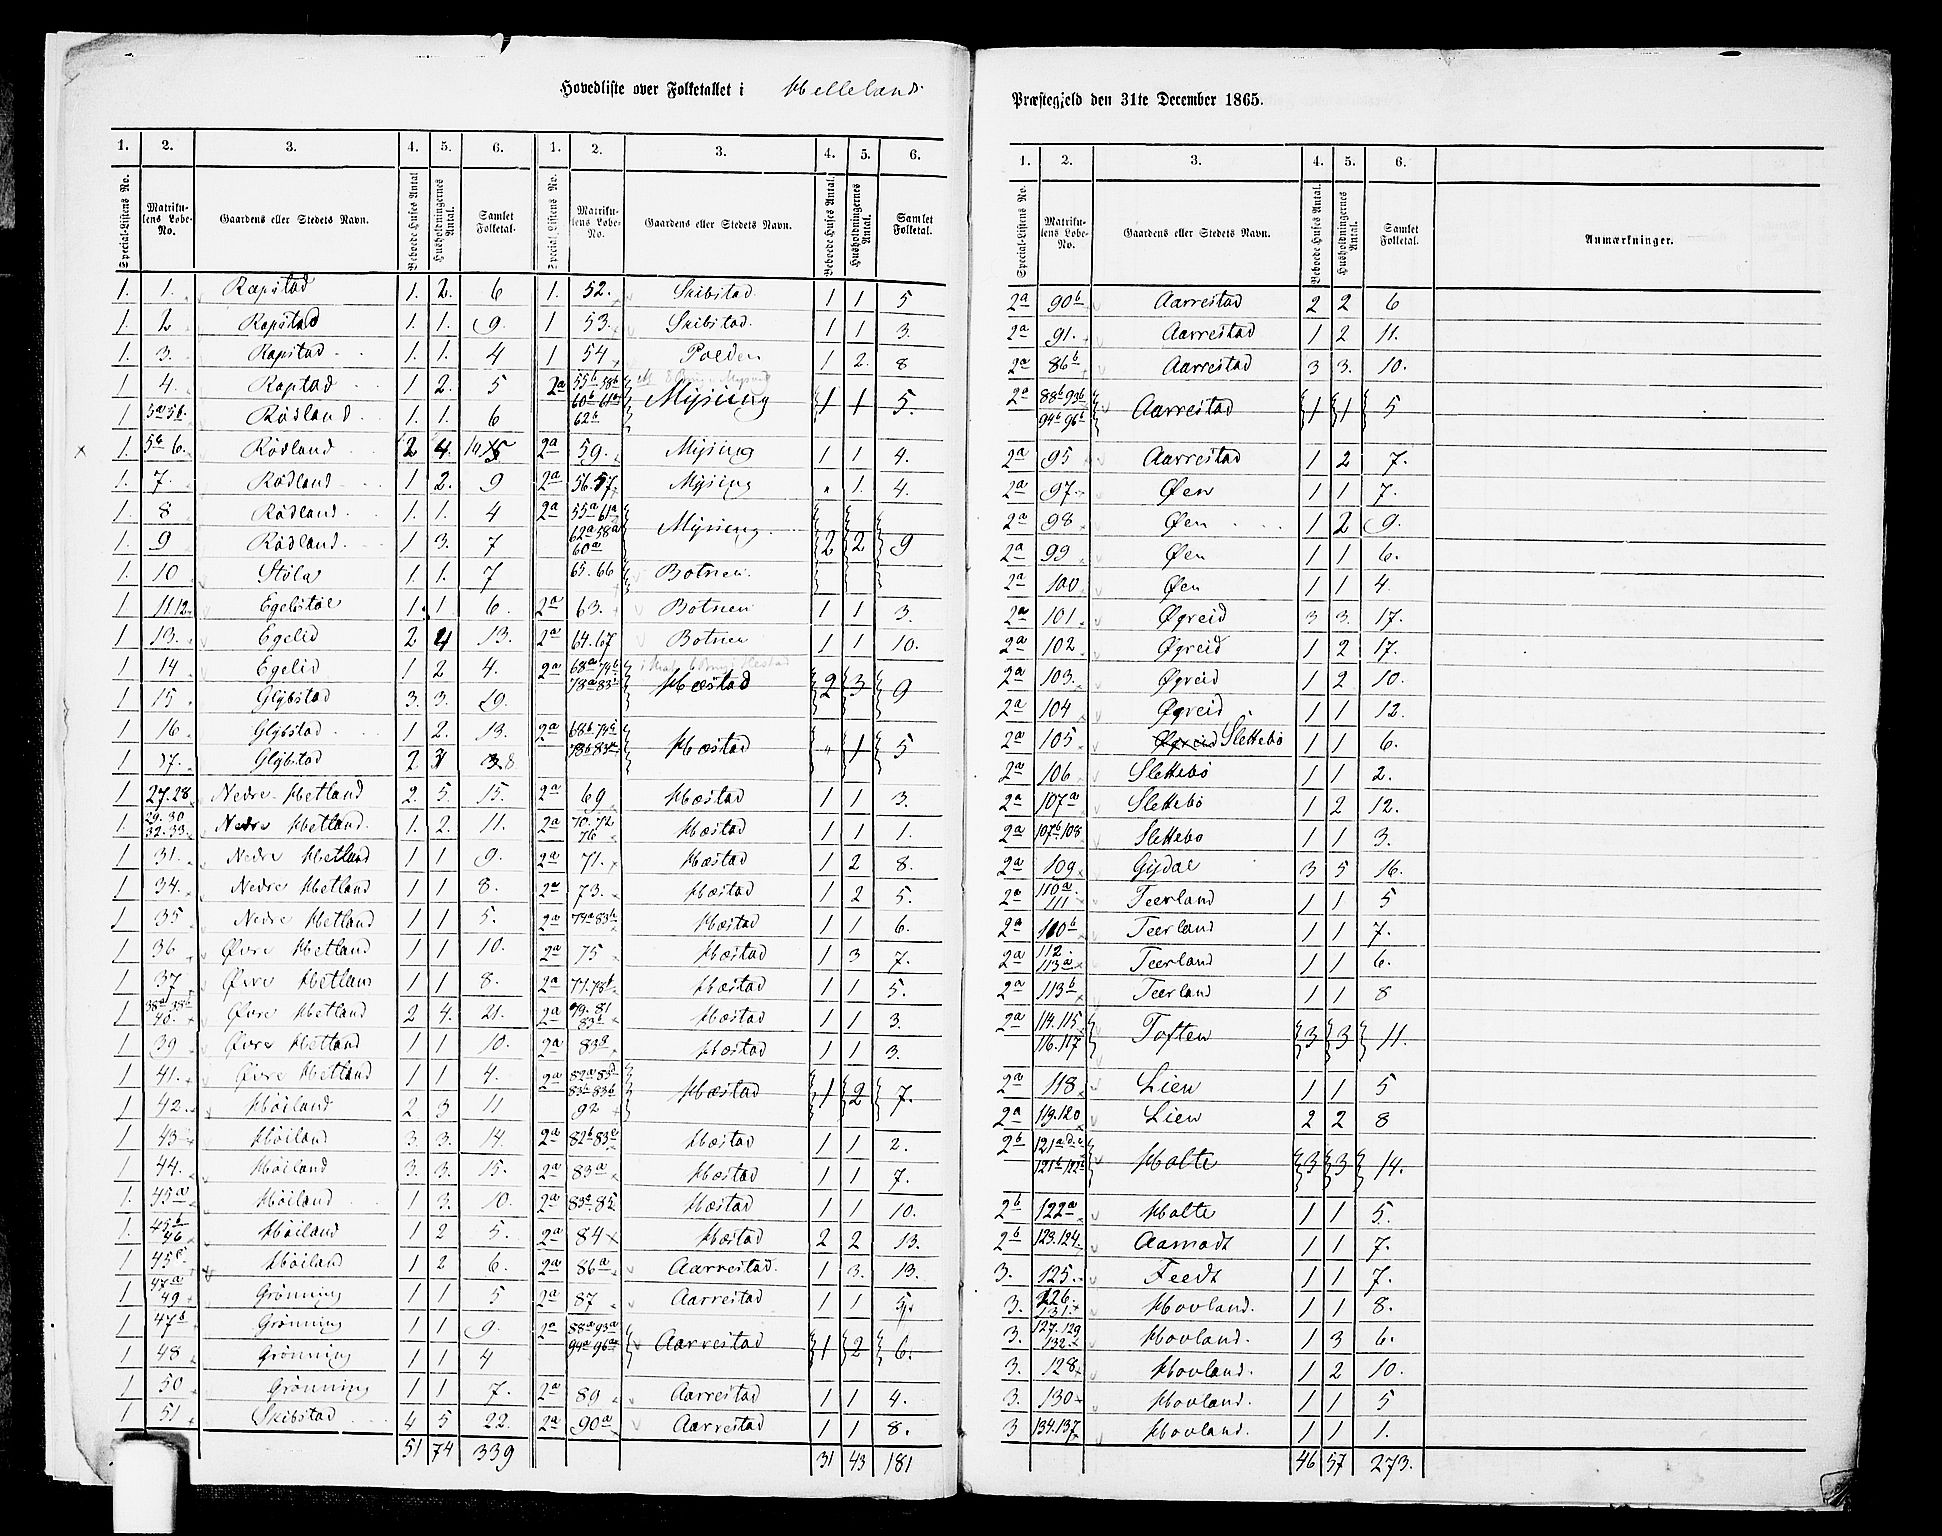 Hovedliste over Folketallet i Helleland
Præstegjeld den 31te December 1865.
1. 2. 3. 4. 5. 6. 1. 2. 3. 4. 5. 6.
Special-Listens No. Matrikulens Løbe-No. Gaardens eller Stedets Navn. Beboede Huses Antal Husholdningernes Antal. Samlet Folketal. Special-Listens No. Matrikulens Løbe-No. Gaardens eller Stedets Navn. Beboede Huses Antal. Husholdningernes Antal. Samlet Folketal.
1. 1. Rapstad 1. 2. 6
1. 2 Rapstad 1. 1. 9.
1. 3. Rapstad 1. 1. 4
1 4. Raptad 1 2. 5
1 5a 5b. Rödland 1. 1. 6
1. 5c 6. Rödland 2 4. 14
1. 7. Rödland 1 2. 9
1. 8 Rödland. 1. 1. 4
1. 9 Rödland. 1 3. 7
1. 10 Stöla 1. 1. 7
1 11.12. Egelstöl 1. 1 6.
1 13. Egelid 2 4 13.
1 14 Egelid 1 2 4.
1 15 Glybstad 3. 3. 29.
1 16 Glybstad 1 2. 13.
1 17. Glybstad 2 8
1 27.28 Nedre Hetland 2. 5. 15.
1. 29.30 32.33. Nedre Hetland. 1. 2. 11.
1 31. Nedre Hetland 1 1 9.
1 34. Nedre Hetland 1 1 8.
1 35 Nedre Hetland 1 1 5.
1 36 Øvre Hetland 1 1 10.
1 37 Øvre Hetland 1 1 8.
1 38a 38b 40. Øvre Hetland 2 4. 21.
1 39 Øvre Hetland 1 1 10.
1 41. Øvre Hetland 1 1 4.
1 42. Höiland 2 3 11
1 43 Höiland 3. 3. 14.
1 44. Höiland 3. 3. 15.
1. 45a Höiland 1 3. 10.
1. 45b 46 Höiland 1 2 5.
1. 45c Höiland 1 2 6.
1 47a 49 Grönning 1 1 5
1 47b Grönning 1 1 9.
1 48 Grönning 1 1 4
1 50 Grönning 1 1 7.
1 51 Skibstad 4 5 22.
51 74 339
1. 52. Skibstad. 1 1 5
1 53. Skibstad. 1 1 3.
1 54 Polden 1 2. 8
2a 55b 58b 60b 61a 62b Mysing 1 1 5.
2a 59. Mysing 1 1 4.
2a 56.57 Mysing " 1. 4.
2a 55a 61a 62a 58a 60a Mysing. 2 2 9
65.66 Botnen.
2a 63. Botnen 1 1 3.
2a 64.67 Botnen 1 1 10.
2a 68a 74b 78a 83 Hæstad 2 3 9
2a 68b 74c 78b 83 Hæstad " 1 5
2a 69 Hæstad 1 1 3.
2a 70.72 76 Hæstad 1 1 1.
2a 71. Hæstad 1 2 8.
2a 73. Hæstad 1 2 5.
2a 74a 83 Hæstad 1 1 6.
2a 75 Hæstad 1 3 7.
2a 77.78 Hæstad 1 1 5.
2a 79.81 83 Hæstad 1 1 3.
2a 83 Hæstad 1 1 3.
2a 82a 83 92 Hæstad 1 2 7.
2a 82b 83 Hæstad 1 1 2.
2a 83a Hæstad 1 1 7.
2a 83 85 Hæstad 1 1 10.
2a 84 Hæstad 2 2 13.
2a 86a Aarrestad. 1 3. 13.
2a 87 Aarrestad 1 1
2a 88a 93a 94a 96a Aarrestad 1 2 6.
2a 89 Aarrestad 1 1 4.
2a 90a Aarrestad 1 1 8.
31 43 181
1. 2. 3. 4. 5. 6.
Special-Listens No. Matrikulens Løbe-No. Gaardens eller Stedets Navn. Beboede Huses Antal. Husholdningernes Antal. Samlet Folketal. Anmærkninger.
2a 90b Aarrestad 2 2 6
2a 91. Aarrestad 1 2 11.
2a 86b Aarrestad 3 3. 10.
2a 88b 93b 94b 96b Aarrestad 1 1 5
2a 95 Aarrestad 1 2 7.
2a 97. Øen 1 1 7.
2a 98 Øen 1 2 9.
2a 99 Øen 1 1 6.
2a 100 Øen 1 1 4.
2a 101 Øgreid 3 3. 17.
2a 102 Øgreid 1 2 17.
2a 103. Øgreid 1 2 10.
2a 104 Øgreid 1 1 12.
2a 105 Øgreid Slettebö 1 1 6.
2a 106 Slettebö 1 1 2.
2a 107a Slettebö 1 2 12.
2a 107b 108 Slettebö 1 1 3.
2a 109 Gydal 3 5 16.
2a 110a 111 Teerland 1 1 5
2a 110b Teerland 1 1 7.
2a 112. 113a Teerland 1 1 6.
2a 113b Teerland 1 1 8
2a 114.115 116.117 Toften 3 3 11.
2a 118 Lien 1 1 5
2a 119.120 Lien 2 2 8
2b 121a 121b 122b Holte 3 3 14.
2b 122a Holte 1 1 5.
2b 123.124 Aamodt 1 1 7.
3. 125. Feedt 1 1 7.
3. 126. 131. Hovland. 1 1 8.
3. 127.129 132 Hovland. 1 3 6.
3. 128 Hovland. 1 2 10.
3. 130 Hovland. 1 1 5
3 134.137 Hovland. 1 1 1.
46 57 273.